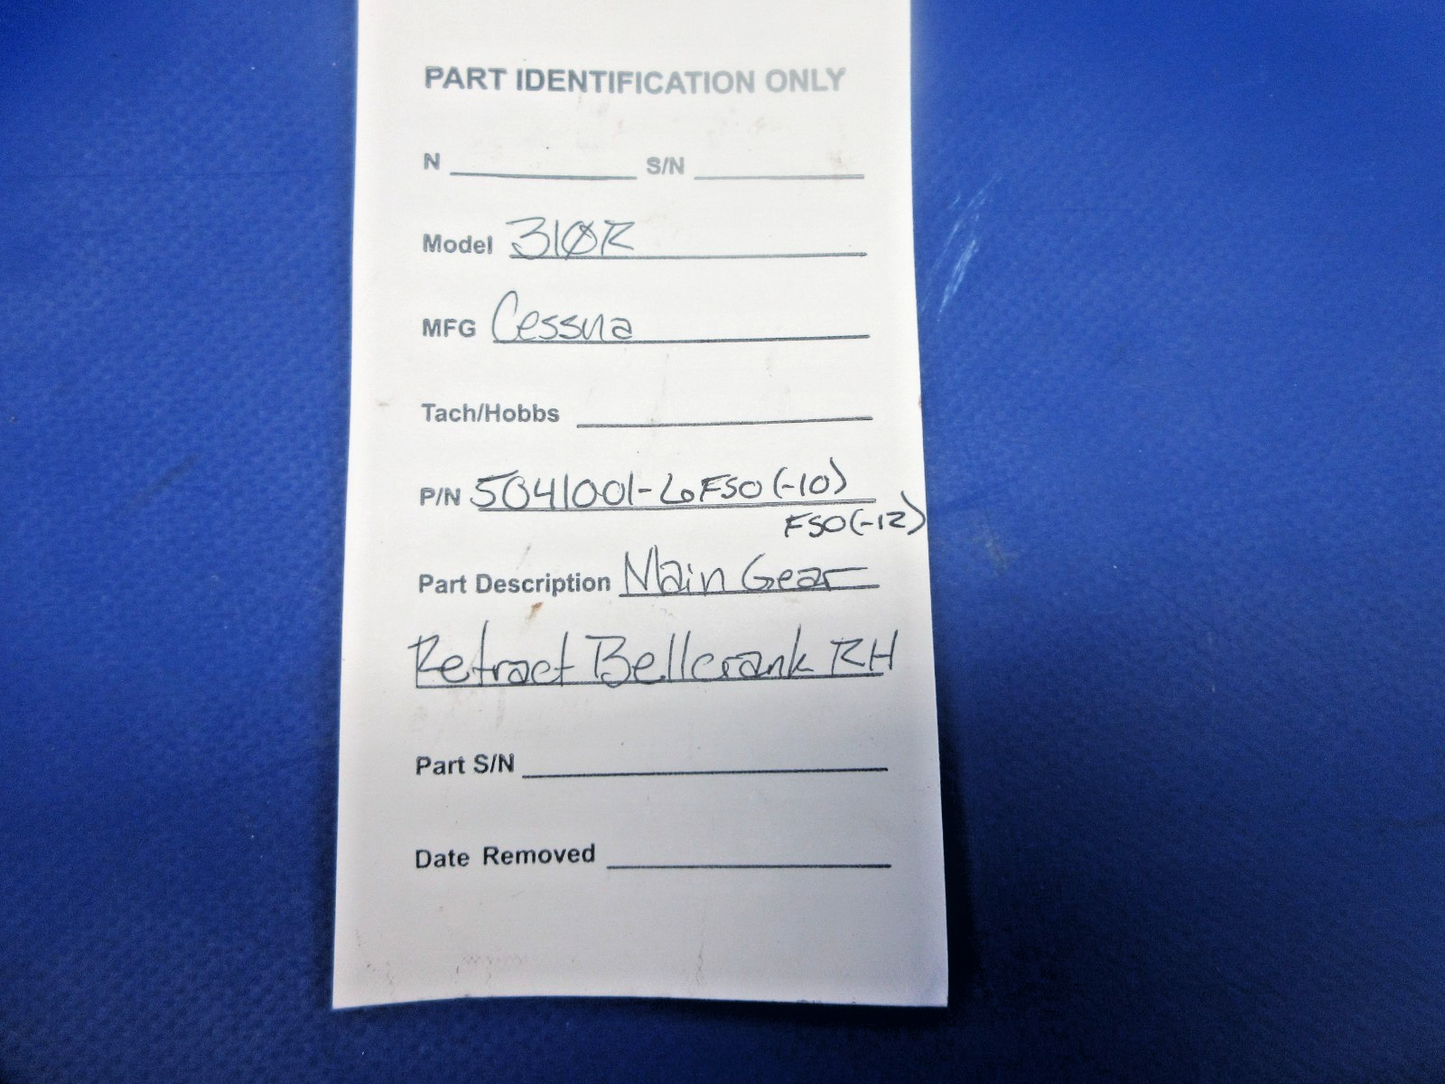 PART IDENTIFICATION ONLY
N __________ S/N __________
Model 310R
MFG Cessna
Tach/Hobbs __________
P/N 5041001-6 FSO (-10)
FSO (-12)
Part Description Main Gear
Retract Bellcrank RH
Part S/N __________
Date Removed __________